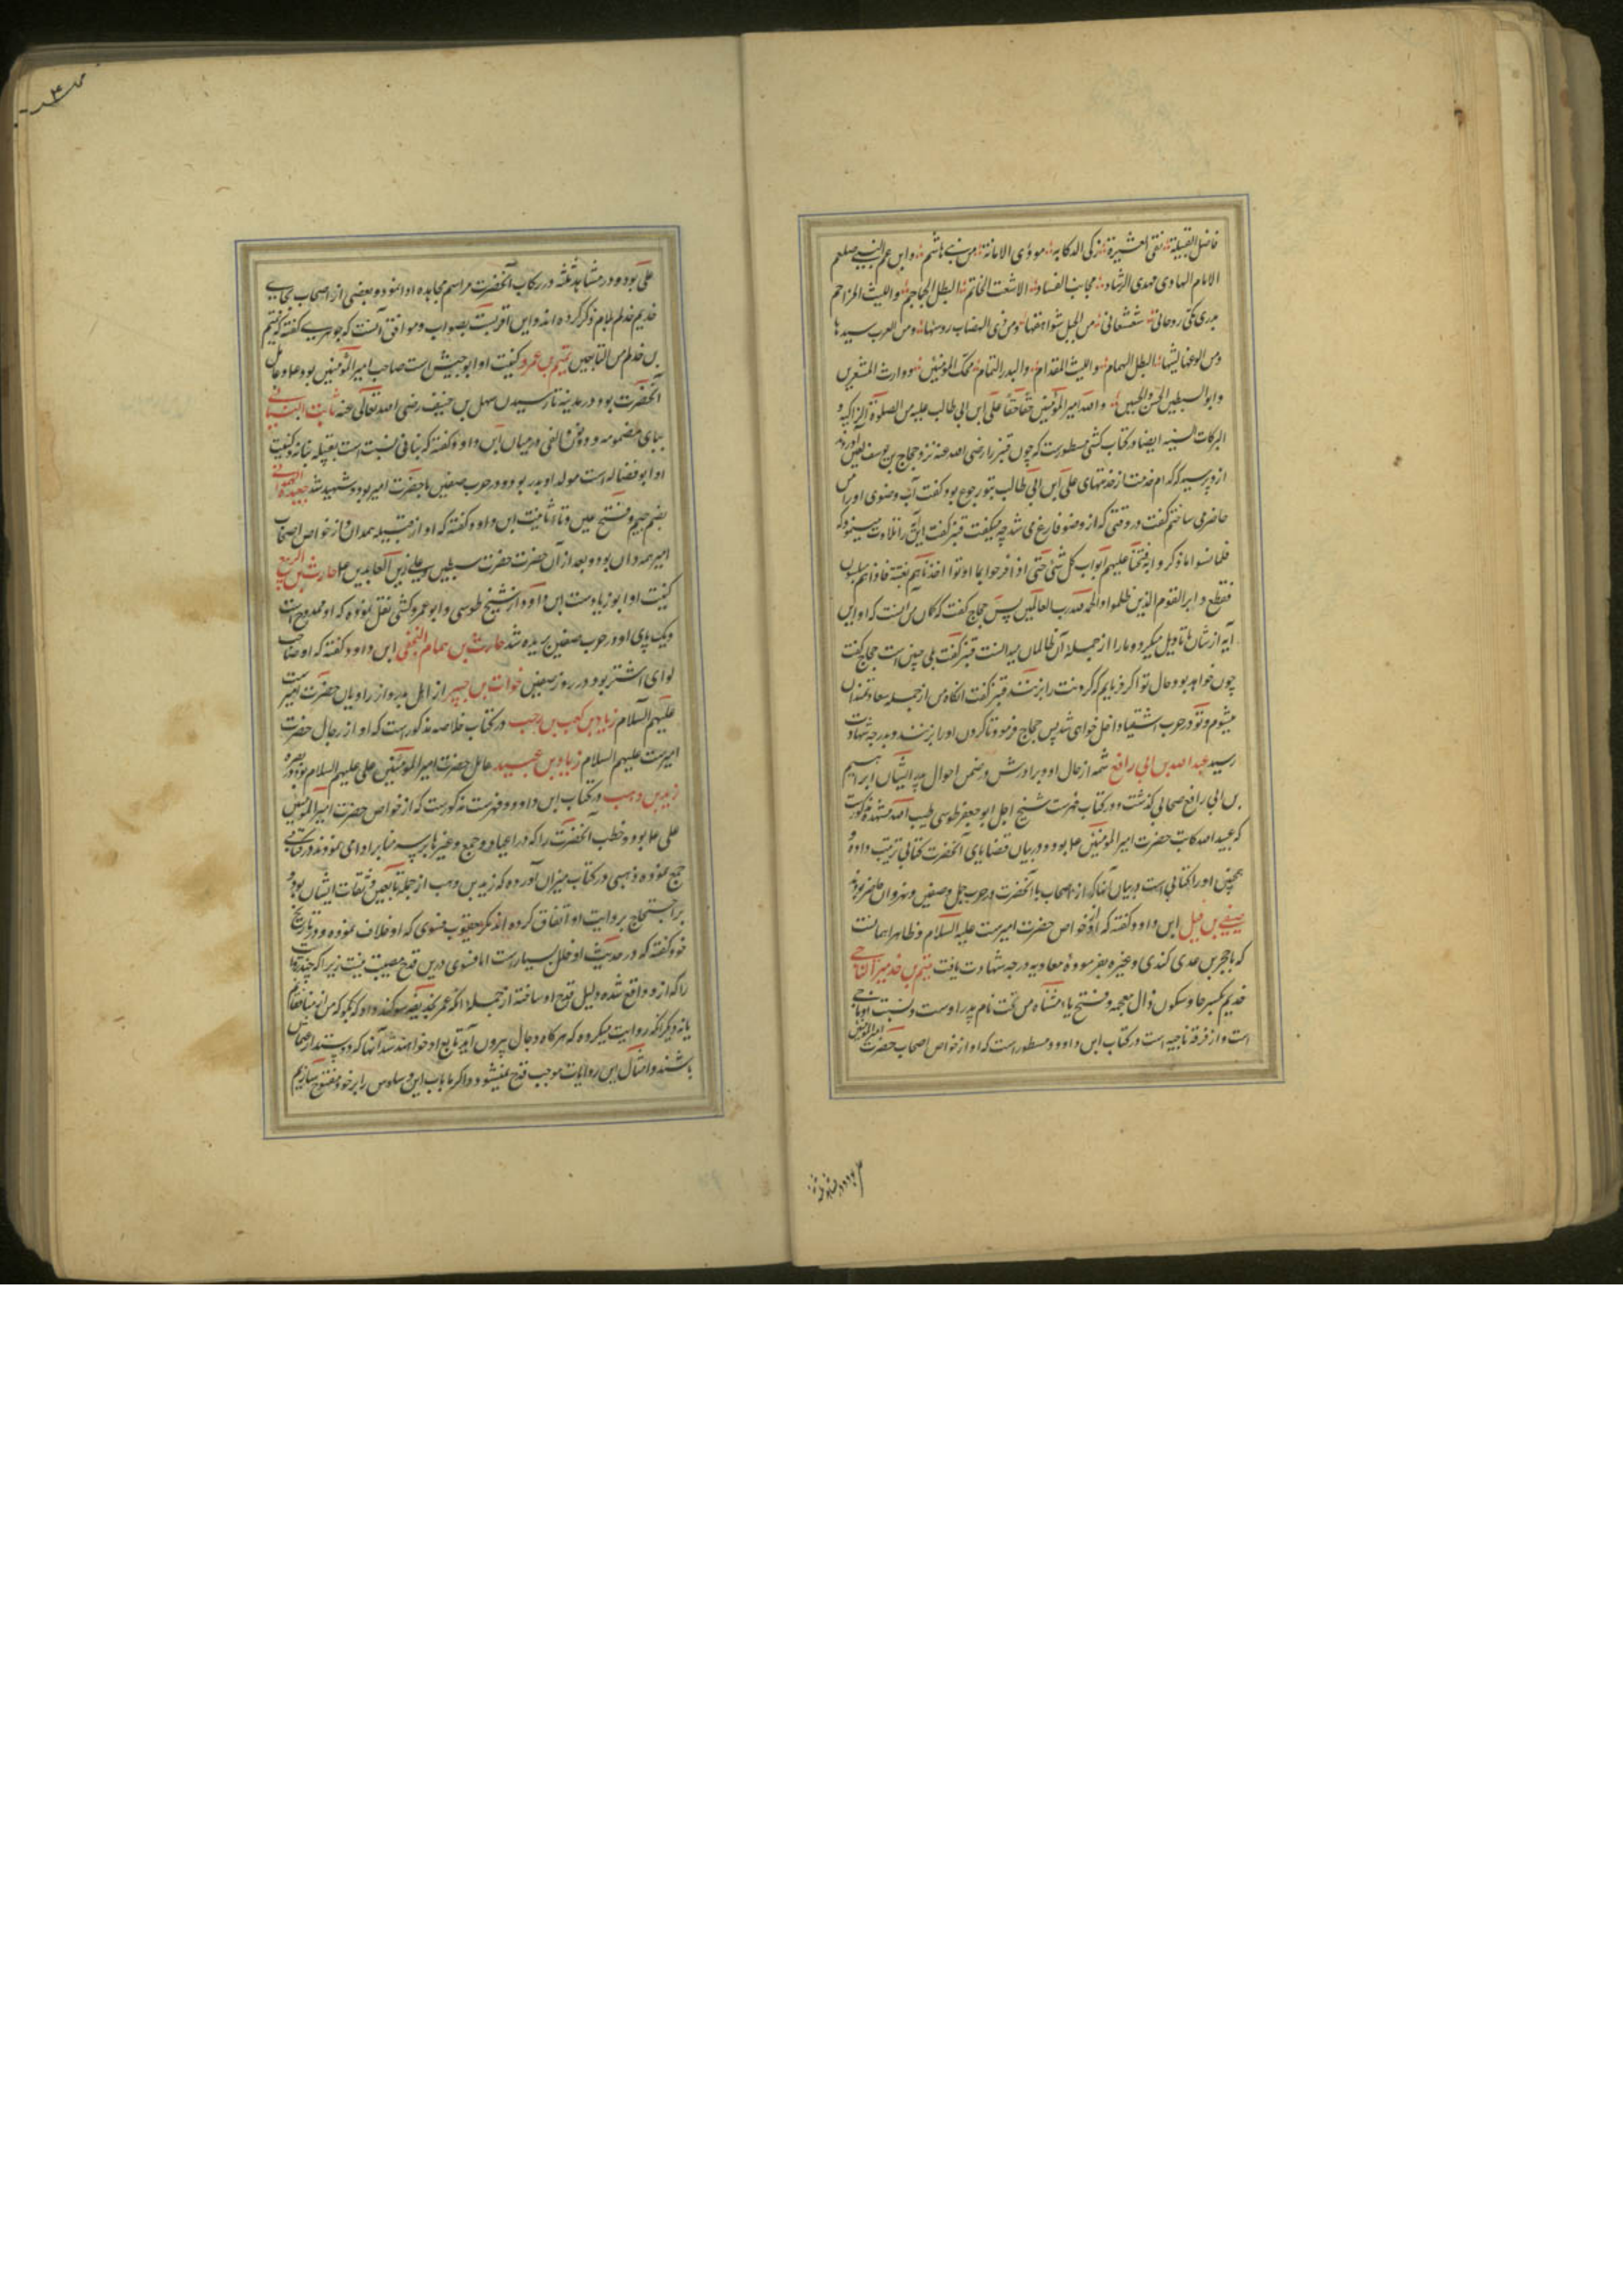 فاضل القبیلة نقی العشیرة زکی الرکابه مودی الامانة من بنی هاشم وابن عم النبی صلعم
الامام الهادی مهدی الرشاد مجانب الفساد الاشعث الحاتم البطل الجماجم واللیث المزاحم
بدری مکی روحانی شعشعانی من الجبل شواهقها ومن ذی الهضاب رؤسها ومن العرب سیدها
ومن الوغا لیثها البطل الهمام واللیث المقدام والبدر التمام محک المؤمنین ووارث المشعرین
وابو السبطین الحسن والحسین والله امیر المؤمنین حقا حقا علی ابن ابی طالب علیه من الصلوة الزاکیه و
البرکات السنیه ایضا در کتاب کشی مسطورست که چون قنبر را رضی الله عنه نزد حجاج بن یوسف لعین آوردند
ازو پرسید که کدام خدمت از خدمتهای علی ابن ابی طالب بتو رجوع بود گفت آب وضوی او را من
حاضر می ساختم گفت در وقتی که از وضو فارغ می شد چه میگفت قنبر گفت این آیه را تلاوت مینمود که
فلما نسوا ما ذکروا به فتحنا علیهم ابواب کل شئ حتی اذا فرحوا بما اوتوا اخذناهم بغتة فاذا هم مبلسون
فقطع دابر القوم الذین ظلموا والحمد لله رب العالمین پس حجاج گفت که گمان من آنست که او این
آیه در شان ما تاویل میکرد و ما را از جمله آن ظالمان میدانست قنبر گفت بلی چنین است حجاج گفت
چون خواهد بود حال تو اگر فرمایم که گردنت را بزنند قنبر گفت آنگاه من از جمله سعادتمندان
میشوم و تو در حرب اشقیا داخل خواهی شد پس حجاج فرمود تا گردن او را بزنند و بدرجه شهادت
رسید عبد الله بن ابی رافع شمه از حال او و برادرش در ضمن احوال پدر ایشان ابراهیم
بن ابی رافع صحابی گذشت و در کتاب فهرست شیخ اجل ابو جعفر طوسی طیب الله مشهده مذکورست
که عبید الله کاتب حضرت امیر المؤمنین ع بود و در بیان قضایای آنحضرت کتابی ترتیب داده و
همچنین او را کتابی است در بیان آنها که از اصحاب با آنحضرت در حرب جمل و صفین و نهروان حاضر بودند
صیفی بن فیل ابن داود گفته که او از خواص حضرت امیرست علیه السلام و ظاهرا همانست
که با حجر بن عدی کندی و غیره بفرموده معاویه درجه شهادت یافت میثم بن خدیم الناجی
خدیم بکسر خا و سکون ذال معجمه و فتح یاء مثناه من تحت نام پدر اوست و نسبت او بناجی
است و از فرقه ناجیه است در کتاب ابن داود مسطورست که او از خواص اصحاب حضرت امیر المؤمنین
علی بود و در مشاهد ثلثه در رکاب آنحضرت مراسم مجاهده ادا نمود و بعضی از اصحاب بجای
خدیم خذلم بلام ذکر کرده اند و این اقربست بصواب و موافق آنست که جوهری گفته که تمیم
بن خذلم من التابعین تمیم بن عمرو کنیت او ابو حبیش است صاحب امیر المؤمنین بود ع و عامل
آنحضرت بود در مدینه تا رسیدن سهل بن حنیف رضی الله تعالی عنه ثابت البنانی
ببای مضمومه و دو نون و الفی در میان ابن داود گفته که بنانی نسبت است بقبیله بنانه و کنیت
او ابو فضاله است مولد او بدر بود و در حرب صفین با حضرت امیر بود و شهید شد جعیده الهمدانی
بضم جیم و فتح عین و تا تانیث ابن داود گفته که او از قبیله همدان و از خواص اصحاب
امیر همدان بود و بعد از آن حضرت حضرت سبطین و علی زین العابدین ع حارث بن الربیع
کنیت او ابو زیادست ابن داود از شیخ طوسی و ابو عمرو کشی نقل نموده که او ممدوح است
و یک پای او در حرب صفین بریده شد حارث بن همام النخعی ابن داود گفته که او صاحب
لوای اشتر بود در روز صفین خوات بن جبیر از اهل بدر و از راویان حضرت امیرست
علیهم السلام زیاد بن کعب بن مرحب در کتاب خلاصه مذکورست که او از رجال حضرت
امیرست علیهم السلام زیاد بن عبید عامل حضرت امیر المؤمنین علی علیهم السلام بود در بصره
زید بن وهب در کتاب ابن داود و فهرست مذکورست که از خواص حضرت امیر المؤمنین
علی ع بود و خطب آنحضرت را که در اعیاد و جمع و غیرها بر سر منابر ادا می نمودند در کتابی
جمع نموده ذهبی در کتاب میزان آورده که زید بن وهب از جمله تابعین و ثقات ایشان بود و
بر احتجاج بروایت او اتفاق کرده اند مگر یعقوب فسوی که او خلاف نموده و در تاریخ
خود گفته که در حدیث او خلل بسیارست اما فسوی درین قدح مصیب نیست زیرا که چند روایت
را که ازو واقع شده دلیل قدح او ساخته از جمله آنکه عمر بحذیفه سوکند داد که بگو که من از منافقانم
یا نه دیگر آنکه روایت میکرده که هرگاه دجال بیرون آید تابع او خواهند شد آنها که دوستدار عثمان
باشند و امثال این روایات موجب قدح نمیشود و اگر ما باب این وساوس را بر خود مفتوح سازیم